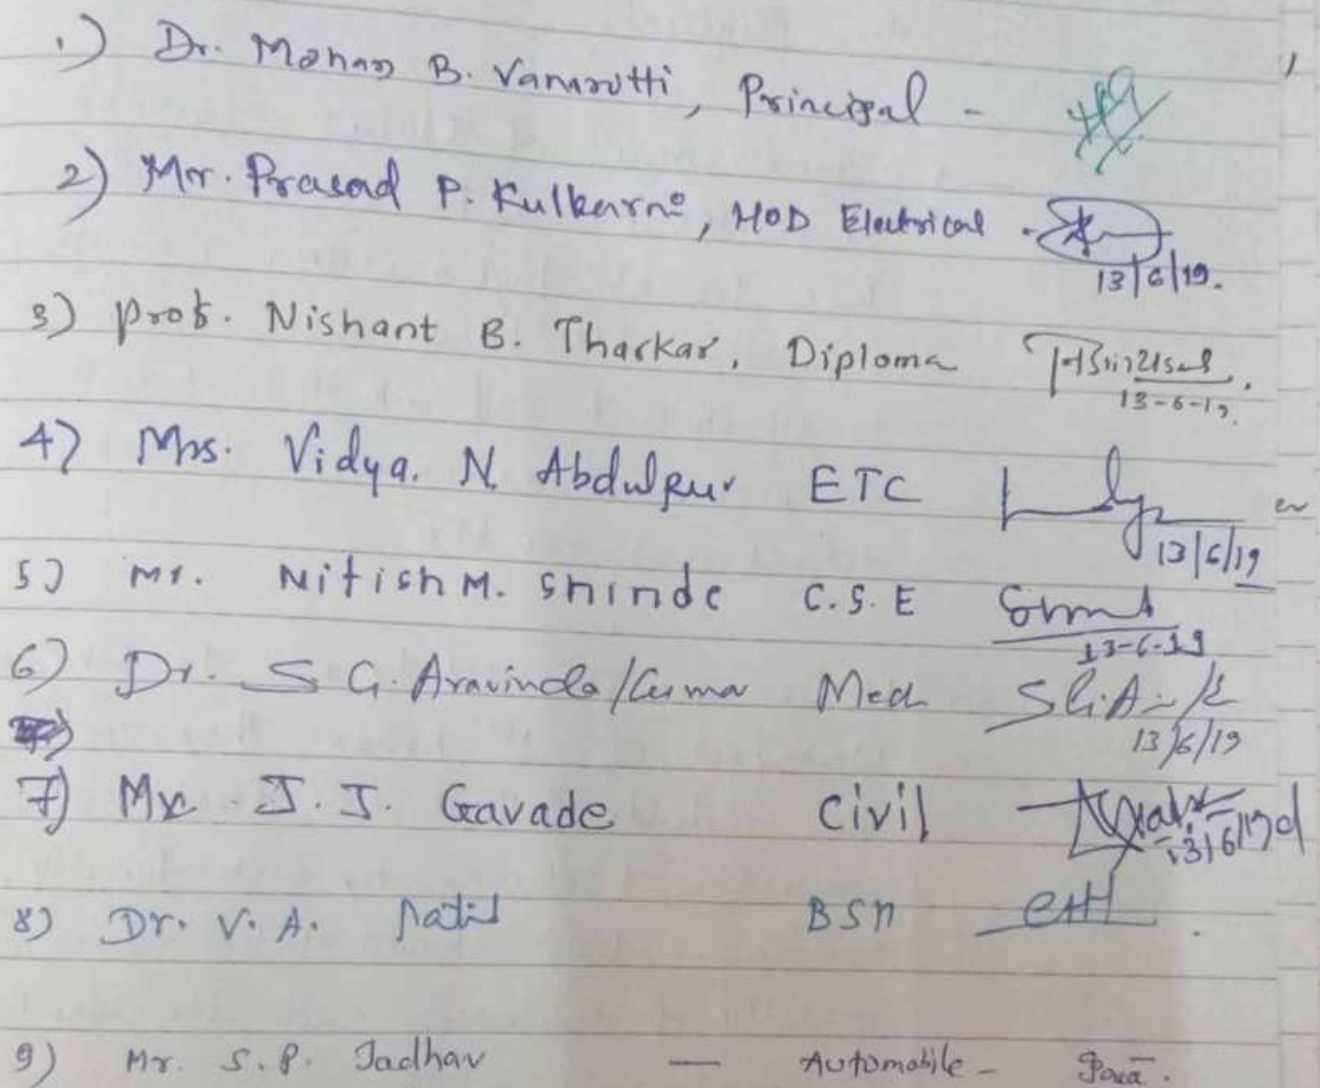 1.) Dr. Mohan B. Vanarotti, Principal -
2) Mr. Prasad P. Kulkarni, HOD Electrical -
13/6/19.
3) Prof. Nishant B. Tharkar, Diploma
13-6-19.
4) Mrs. Vidya. N. Abdulpur ETC
13/6/19
5) Mr. Nitish M. Shinde C.S.E
13-6-19
6) Dr. S G. Aravinda Kumar Mech
13/6/19
7) Mr. J. J. Gavade Civil
13/6/19
8) Dr. V. A. Patil BSH
9) Mr. S. P. Jadhav — Automobile -